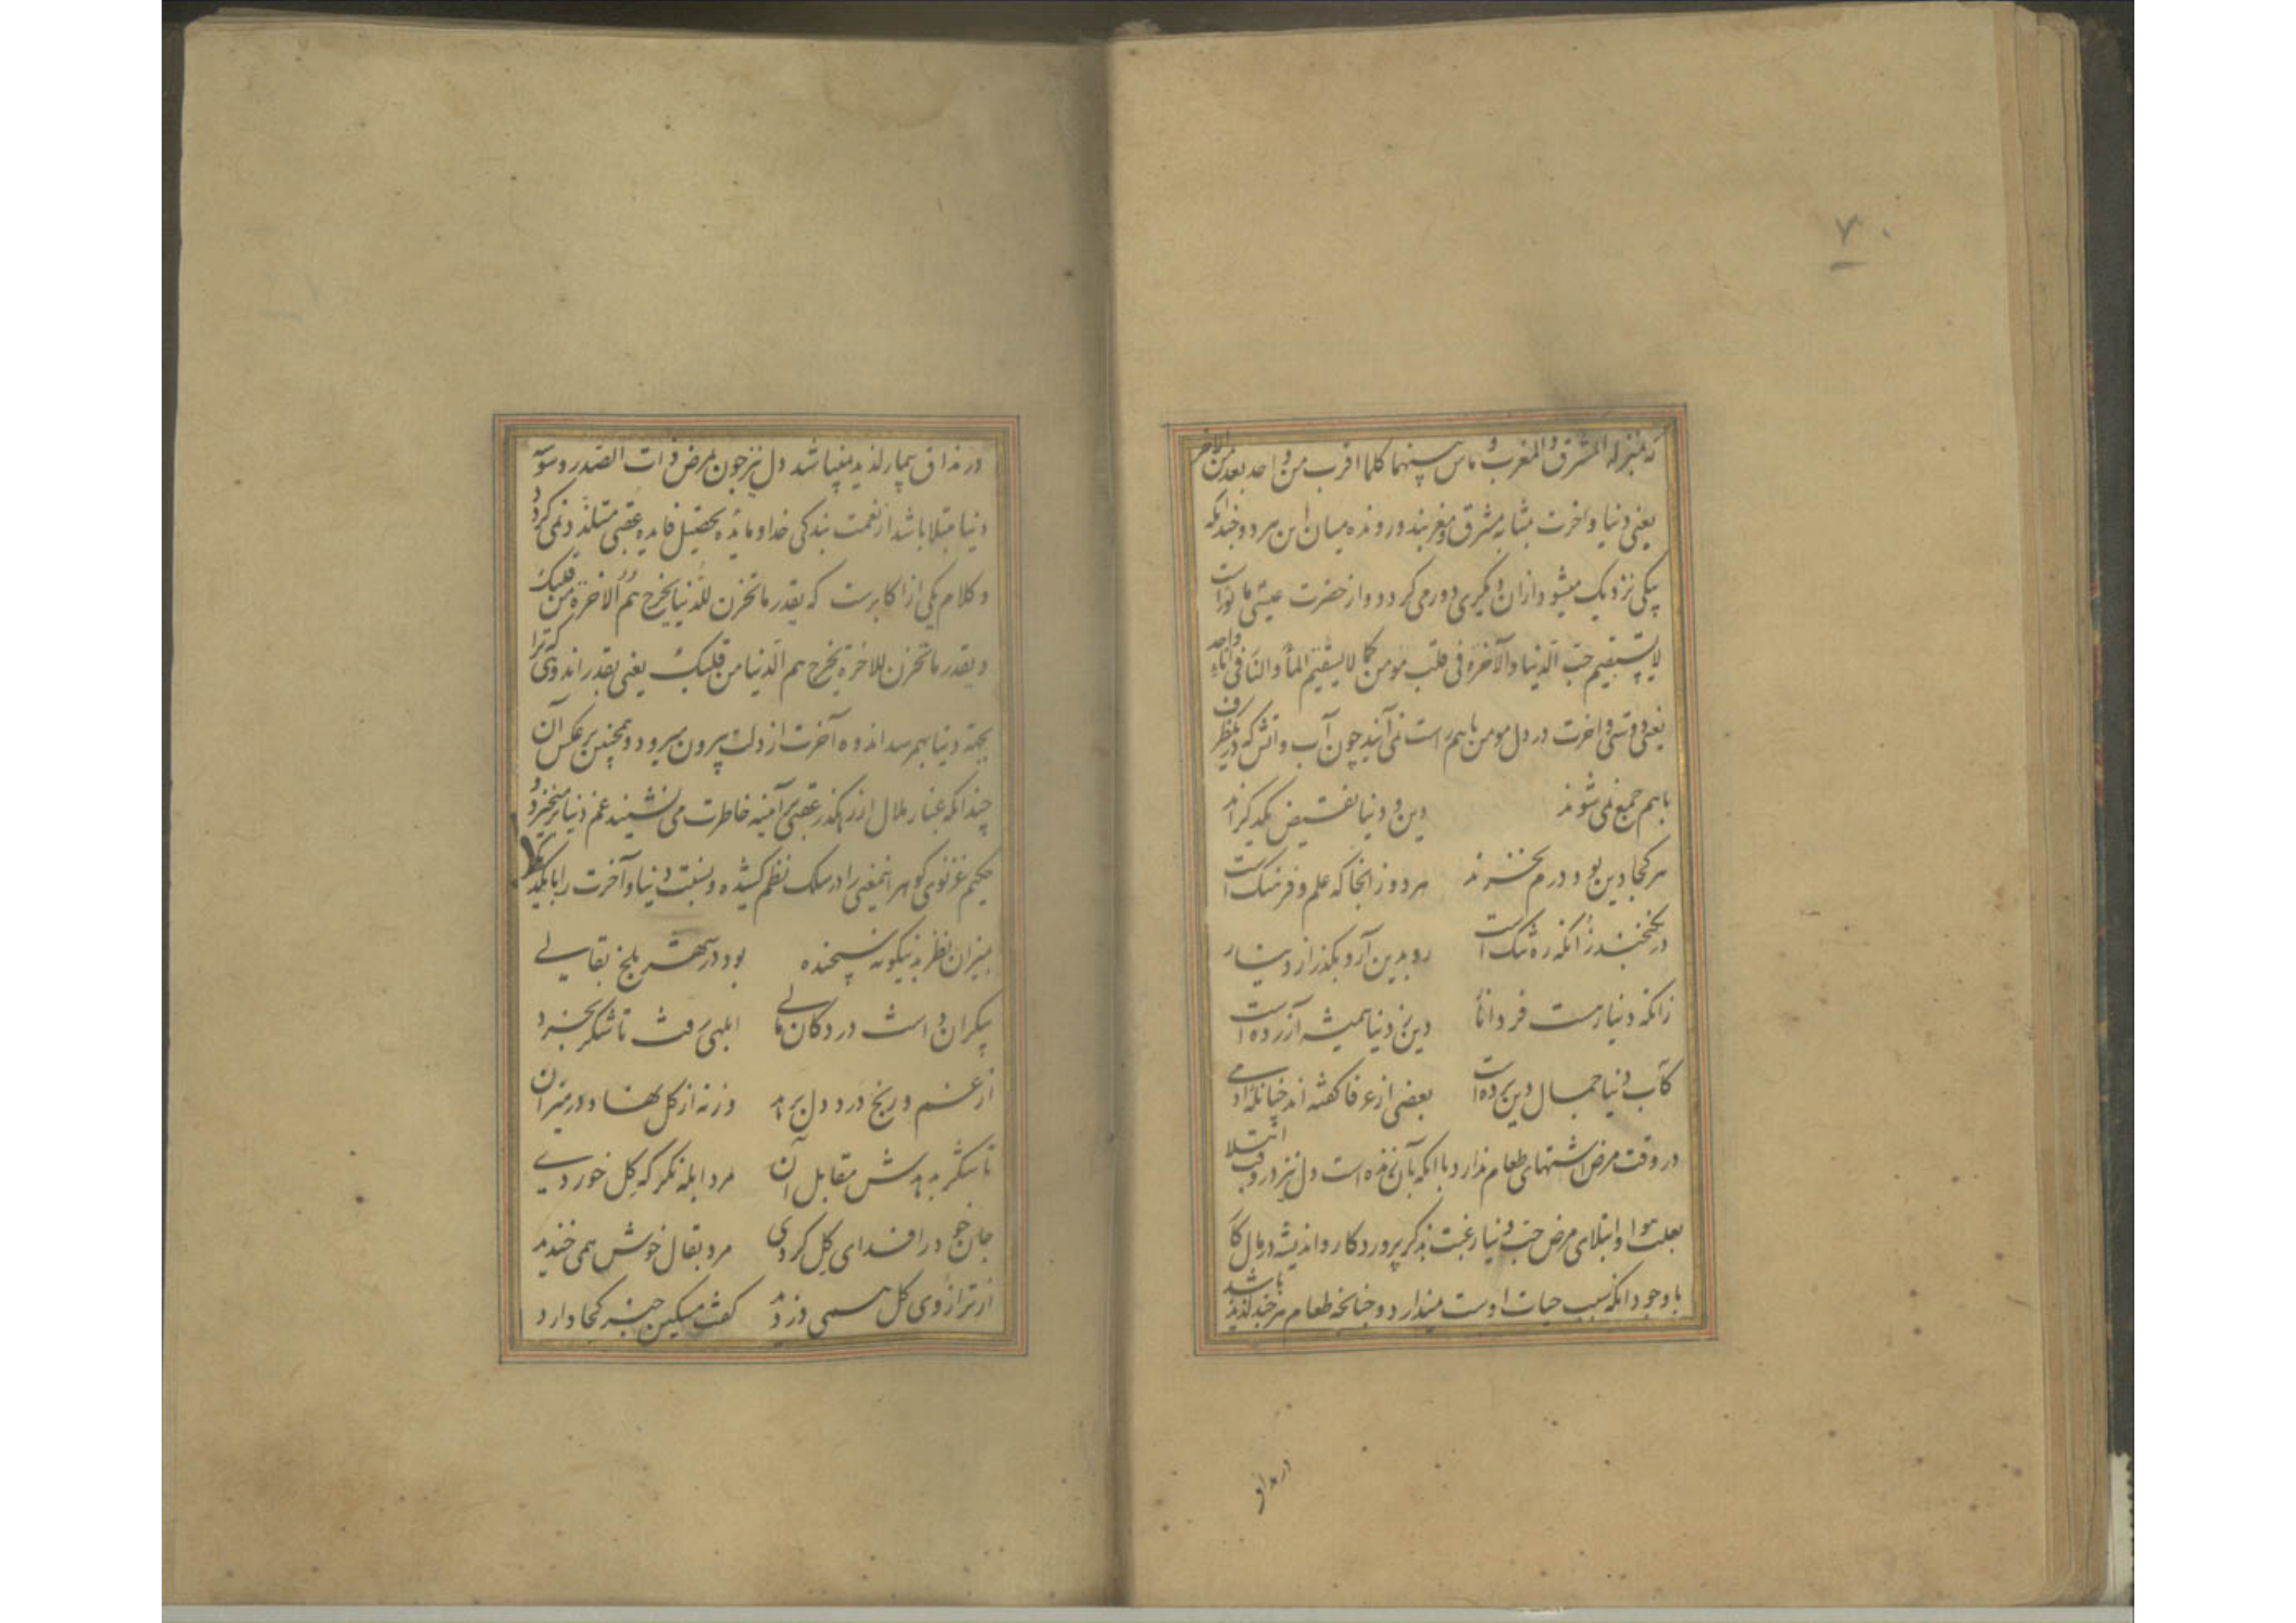 ۷۰
که بمنزله المشرق و المغرب و ماش بینهما کلما اقرب من واحد بعد من الآخر
یعنی دنیا و آخرت بمثابه مشرق و مغربند و رونده میان این هر دو چندانکه
بیکی نزدیک میشود از آن دیگری دور می گردد و از حضرت عیسی ماثورات
لا یستقیم حبّ الدنیا والآخرة فی قلب مومن کما لا یستقیم الماء والنار فی اناء واحد
یعنی دوستی و آخرت در دل مومن باهم راست نمی آیند چون آب و آتش که در یک ظرف
باهم جمع نمی شوند دین و دنیا نقیض یکدیگرند
هر کجا دین بود درم نخرند هر دو ز انجا که علم و فرهنگ است
در نگنجند زانکه ره تنگ است رو بدین آر و بگذر از دینار
زانکه دنیا رهست فردا نا دین ز دنیا همیشه آزرده است
کآب دنیا جمال دین برده است بعضی از عرفا گفته اند چنانکه آدمی
در وقت مرض اشتهای طعام ندارد با انکه بآن زنده است دل نیز در وقت ابتلا
بعلت هوا و ابتلای مرض حبّ دنیا رغبت بذکر پروردکار و اندیشه در مال کار
با وجود انکه سبب حیات اوست میندارد و چنانچه طعام هر چند لذیذ باشد
در مذاق
در مذاق بیمار لذیذ مینباشد دل نیز چون بمرض ذات الصدر وسوسه
دنیا مبتلا باشد از نعمت بندکی خدا و مایده تحصیل فایده عقبی متلذذ نمی گردد
و کلام یکی از اکابرست که بقدر ما تحزن للدنیا یخرج همّ الاخرة من قلبک
و بقدر ما تحزن للاخرة یخرج هم الدنیا من قلبک یعنی بقدر اندوهی که ترا
بجهة دنیا بهم رسد اندوه آخرت از دلت بیرون میرود و همچنین بر عکس آن
چندانکه غبار ملال از رهگذر عقبی بر آینه خاطرت می نشیند غم دنیا بر میخیزد و
حکیم غزنوی گوهر اینمعنی را در سلک نظم کشیده و نسبت دنیا و آخرت را با یکدیگر
بمیزان نظر بدینگونه سنجیده بود در شهر بلخ بقالی
بیکران داشت در دکان مالی ابلهی رفت تا شکر بخرد
از غم و رنج درد دل برهد وزنه از گل نهاد در میزان
تا شکر بدهدش مقابل آن مرد ابله نگر که گل خوردی
جان خود را فدای گل کردی مرد بقال خوش همی خندید
از ترازوی گل همی دزدید گفت مسکین خبر کجا دارد